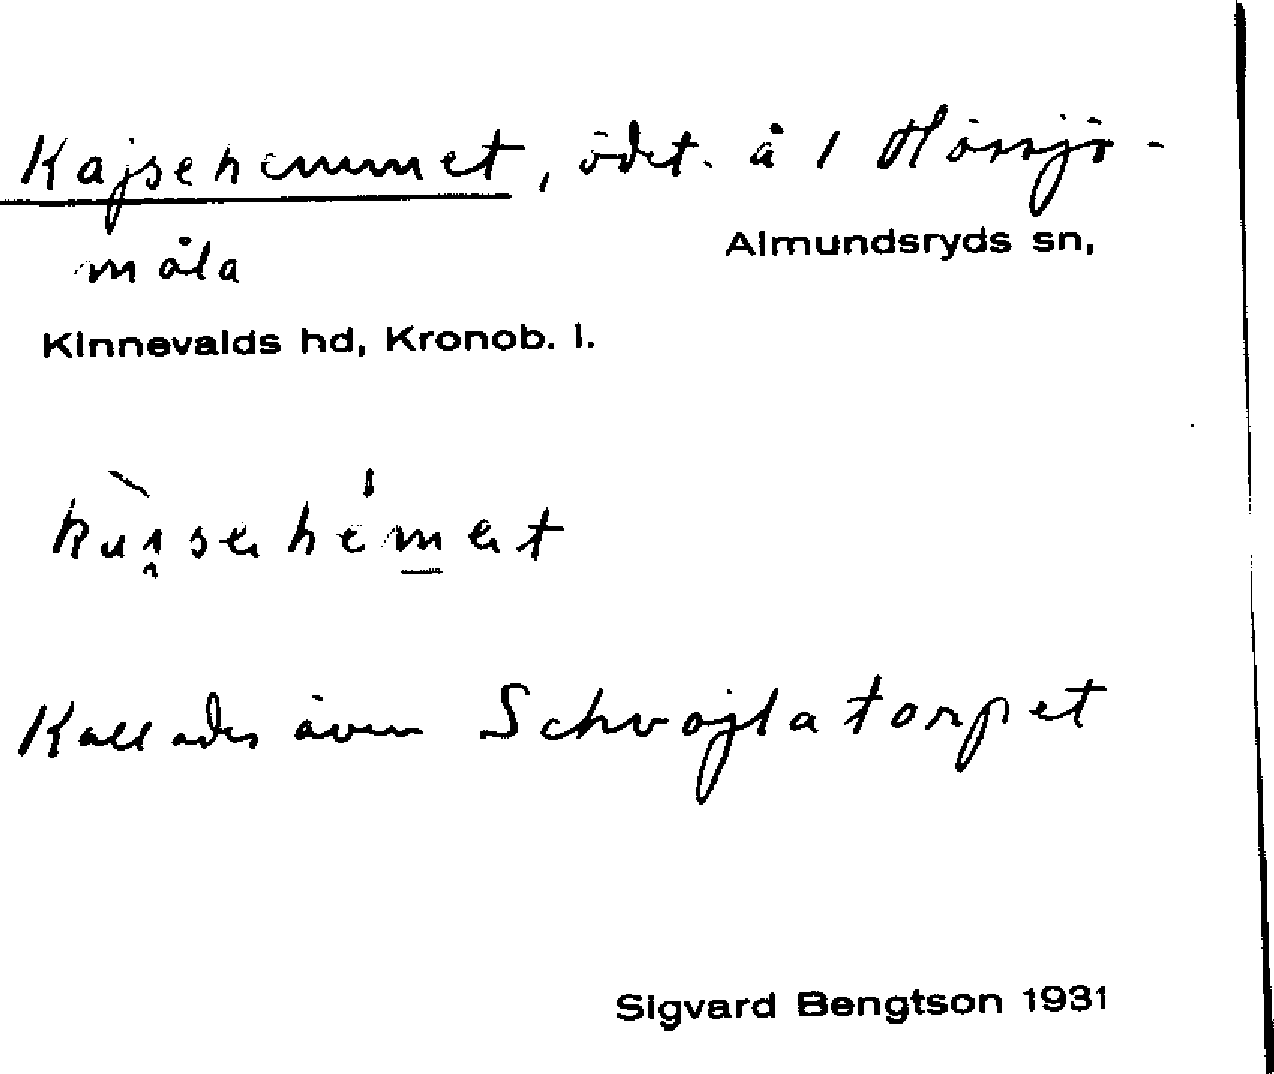 Kajsehemmet, ödet. å 1 Hössjö-
måla
Almundsryds sn,
Kinnevalds hd, Kronob. l.
Kallades även Schvajlatorpet
Sigvard Bengtson 1931